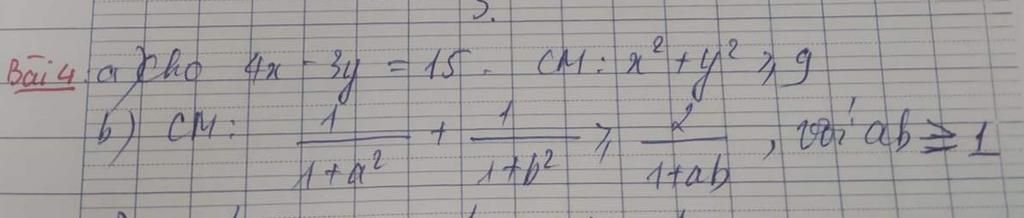 Bài 4. a) Cho 4x - 3y = 15. CM: x² + y² ⩾ 9
b) CM: 1/(1+a²) + 1/(1+b²) ⩾ 2/(1+ab), với ab ≥ 1